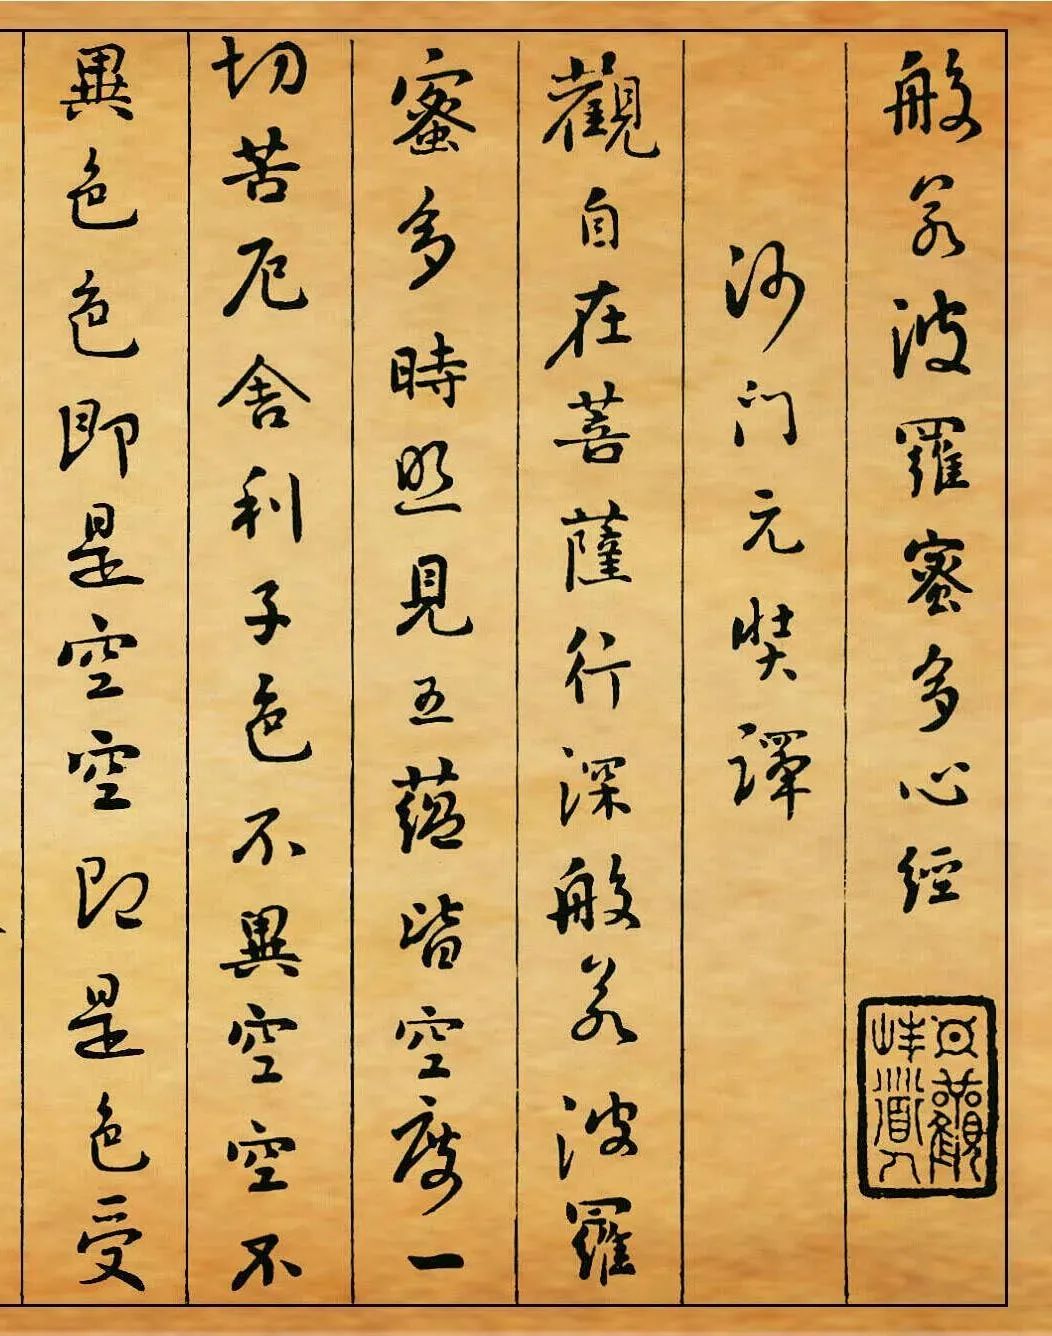 般若波羅蜜多心經
沙門元奘譯
觀自在菩薩行深般若波羅
蜜多時照見五蘊皆空度一
切苦厄舍利子色不異空空不
異色色即是空空即是色受